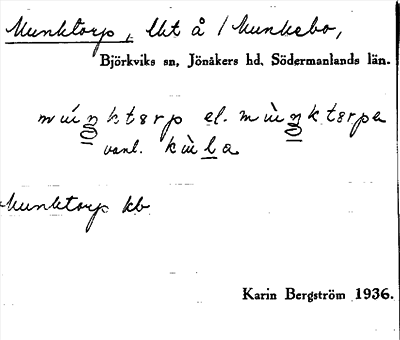 Munktorp, lht å 1 Munkebo,
Björkviks sn, Jönåkers hd, Södermanlands län.
múŋktɘrp el. mùŋktɘrpa
vanl. kùla
Munktorp kb
Karin Bergström 1936.